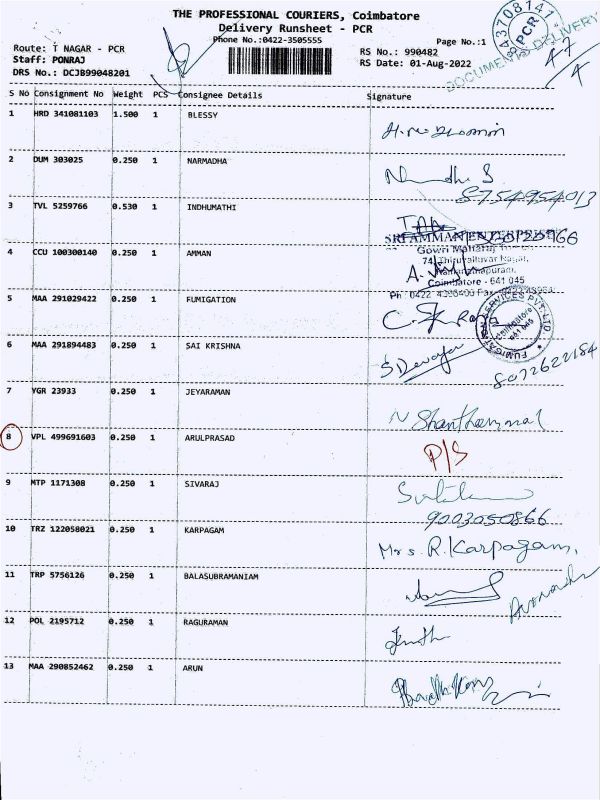 THE PROFESSIONAL COURIERS, Coimbatore
Delivery Runsheet - PCR
Phone No.:0422-3505555
Page No.:1
Route: T NAGAR - PCR
RS No.: 990482
Staff: PONRAJ
RS Date: 01-Aug-2022
DRS No.: DCJB99048201
A3708141
PCR
DOCUMENTS DELIVERY
S No Consignment No Weight PCS Consignee Details Signature
1 HRD 341081103 1.500 1 BLESSY
2 DUM 303025 0.250 1 NARMADHA
8754954013
3 TVL 5259766 0.530 1 INDHUMATHI
SRI AMMAN ENTERPRISES
Gowri Maharaj
74, Thiruvalluvar Nagar,
Ramanathapuram,
Coimbatore - 641 045
4 CCU 100300140 0.250 1 AMMAN
5 MAA 291029422 0.250 1 FUMIGATION
6 MAA 291894483 0.250 1 SAI KRISHNA
S Devaja
8072622184
7 YGR 23933 0.250 1 JEYARAMAN
N Shanthammal
8 VPL 499691603 0.250 1 ARULPRASAD
P/S
9 MTP 1171308 0.250 1 SIVARAJ
9003050866
10 TRZ 122058021 0.250 1 KARPAGAM
Mrs. R. Karpagam,
11 TRP 5756126 0.250 1 BALASUBRAMANIAM
12 POL 2195712 0.250 1 RAGURAMAN
13 MAA 290852462 0.250 1 ARUN